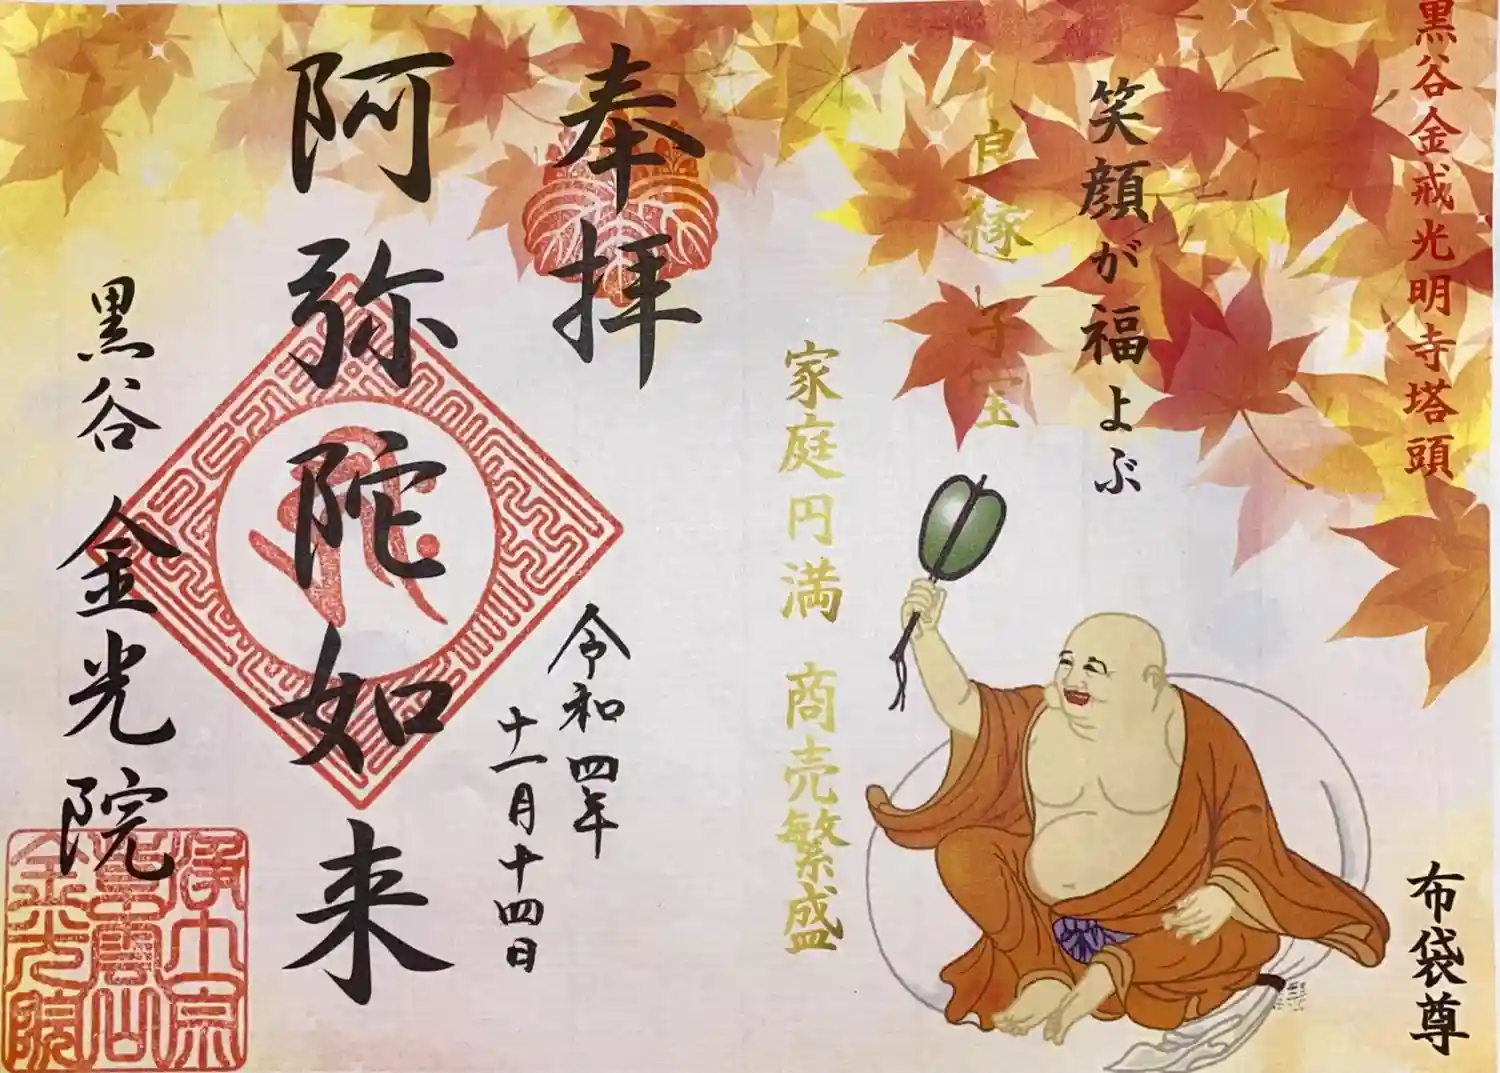 黒谷金戒光明寺塔頭
笑顔が福よぶ
良縁 子宝
家庭円満 商売繁盛
布袋尊
奉拝
令和四年
十一月十四日
阿弥陀如来
黒谷 金光院
浄土宗
紫雲山
金光院